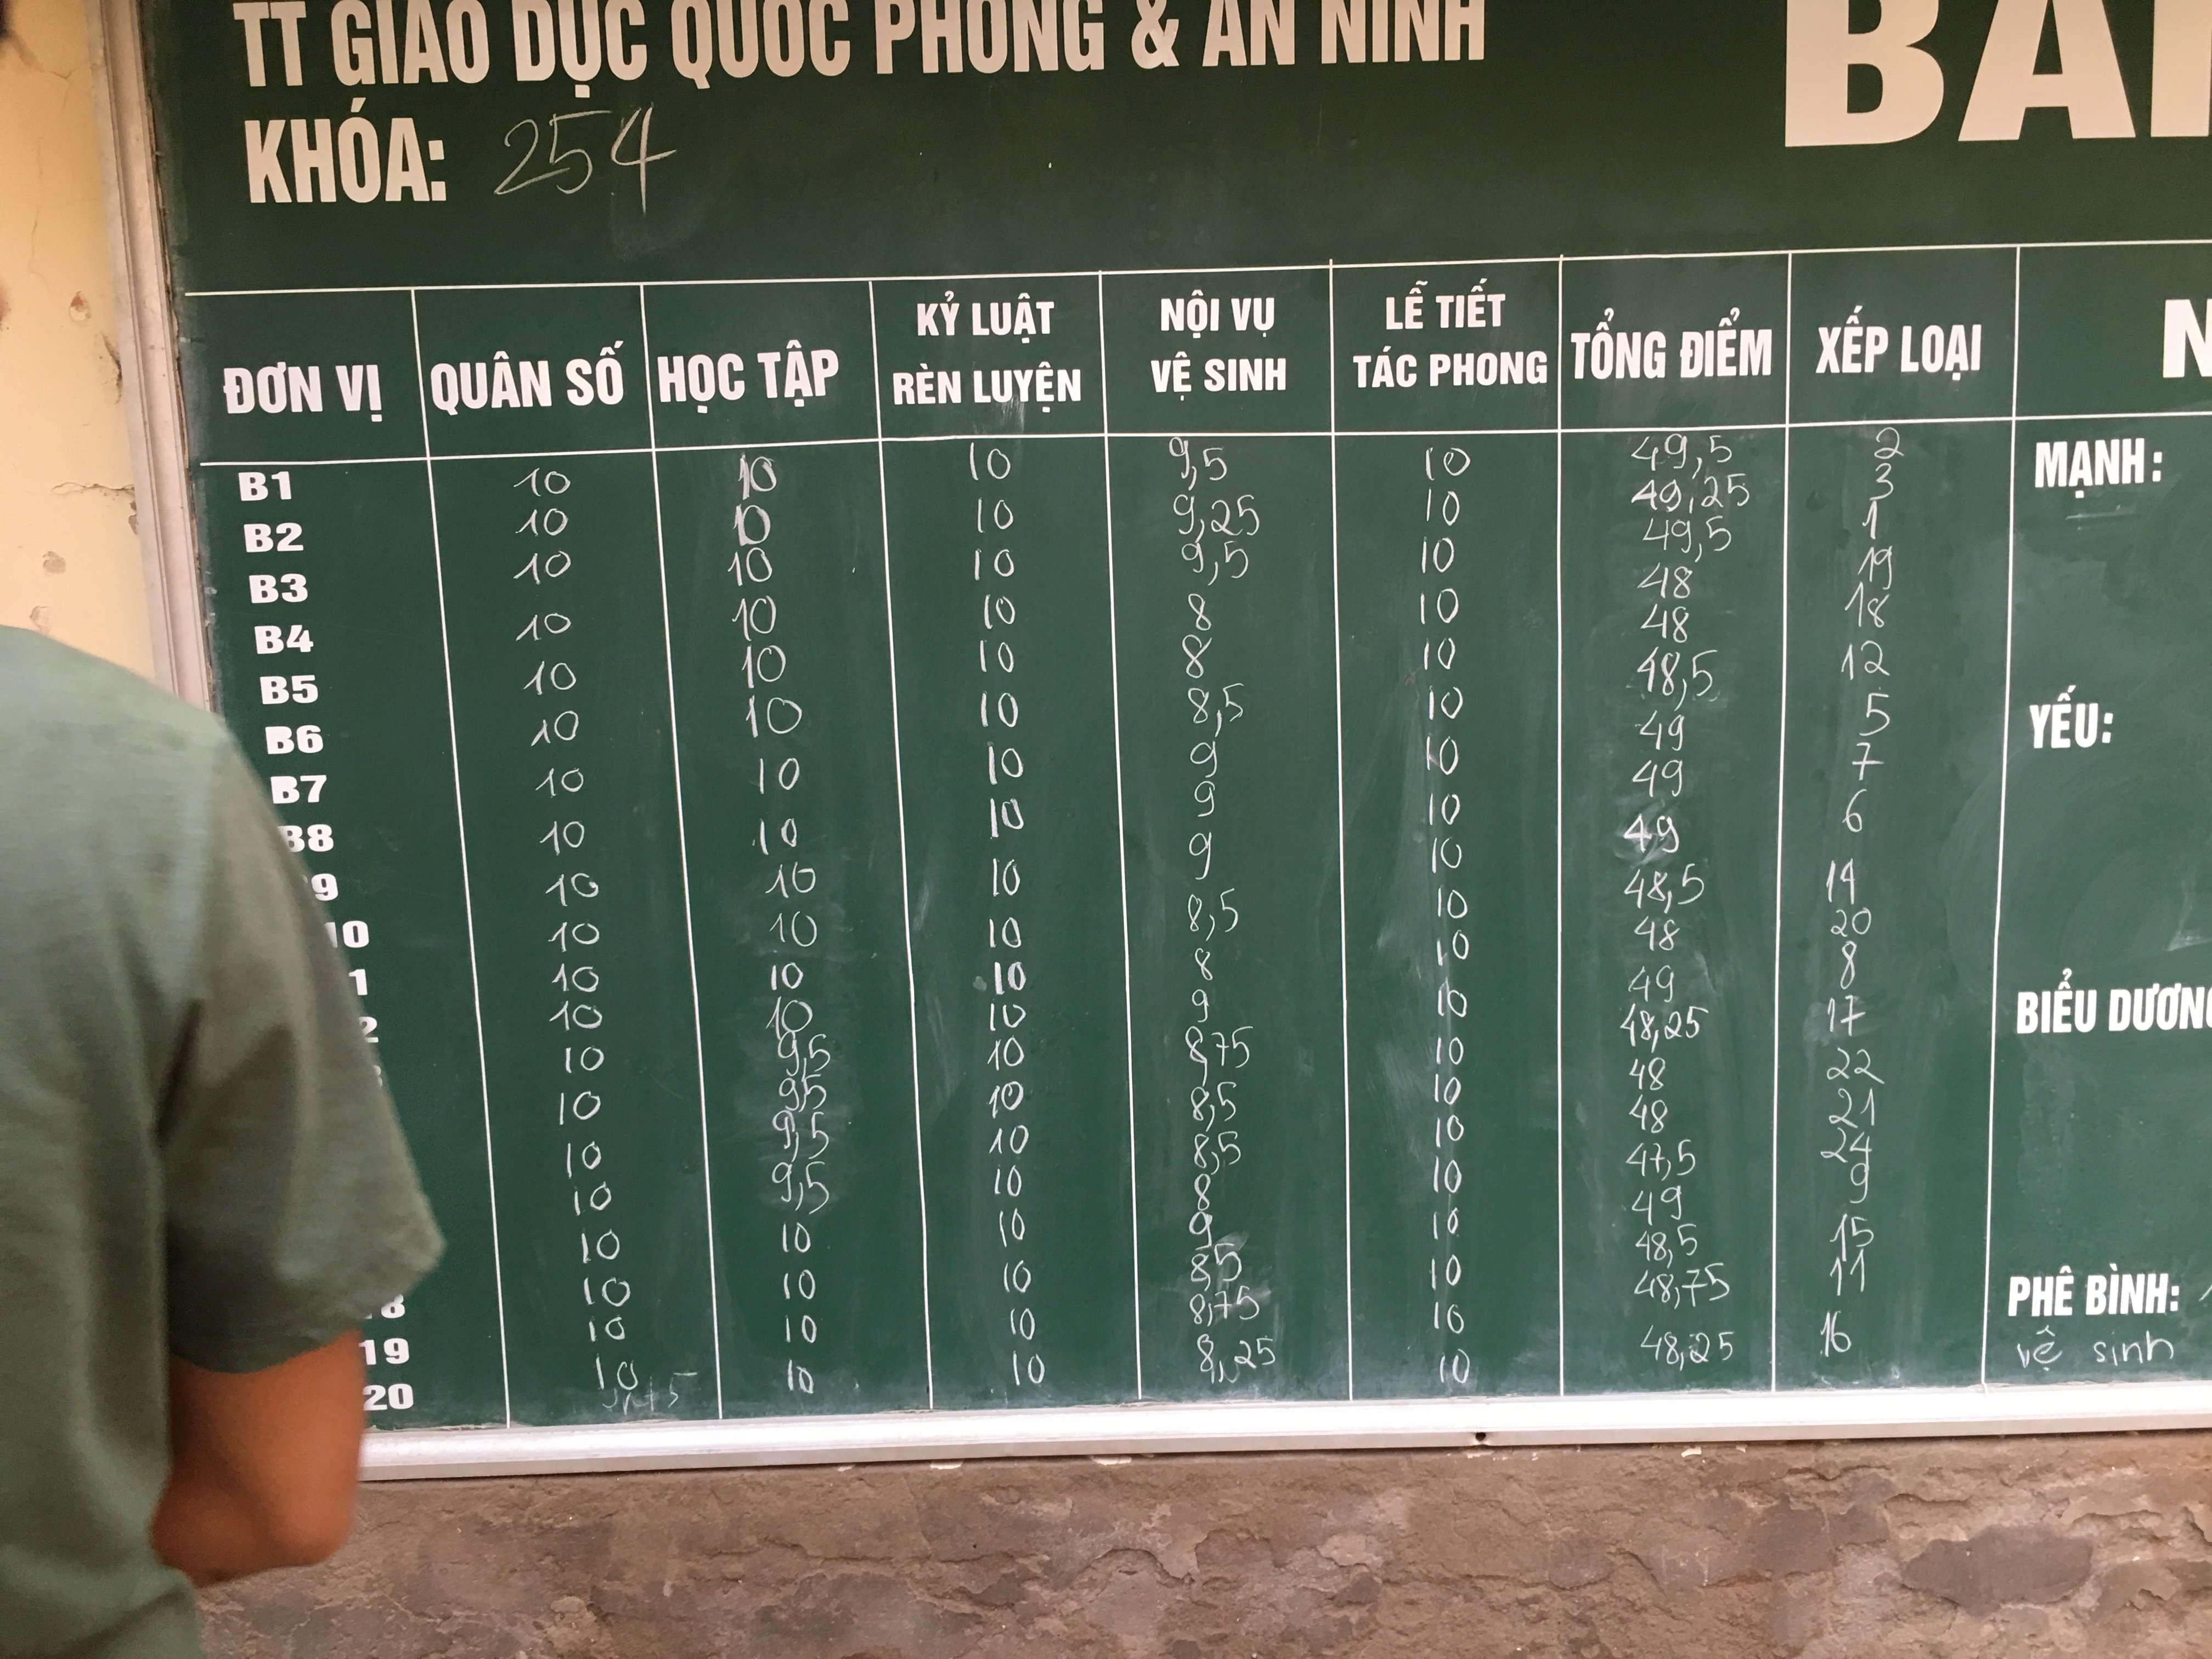 TT GIÁO DỤC QUỐC PHÒNG & AN NINH
KHÓA: 254
ĐƠN VỊ QUÂN SỐ HỌC TẬP KỶ LUẬT RÈN LUYỆN NỘI VỤ VỆ SINH LỄ TIẾT TÁC PHONG TỔNG ĐIỂM XẾP LOẠI
B1 10 10 10 9,5 10 49,5 2
B2 10 10 10 9,25 10 49,25 3
B3 10 10 10 9,5 10 49,5 1
B4 10 10 10 8 10 48 19
B5 10 10 10 8 10 48 18
B6 10 10 10 8,5 10 48,5 12
B7 10 10 10 9 10 49 5
B8 10 10 10 9 10 49 7
9 10 10 10 9 10 49 6
10 10 10 10 8,5 10 48,5 14
1 10 10 10 8 10 48 20
2 10 10 10 9 10 49 8
10 9,5 10 8,75 10 48,25 17
10 9,5 10 8,5 10 48 22
10 9,5 10 8,5 10 48 21
10 9,5 10 8 10 47,5 24
10 10 10 9 10 49 9
18 10 10 10 8,5 10 48,5 15
19 10 10 10 8,75 10 48,75 11
20 10 10 10 8,25 10 48,25 16
MẠNH:
YẾU:
BIỂU DƯƠNG
PHÊ BÌNH:
vệ sinh